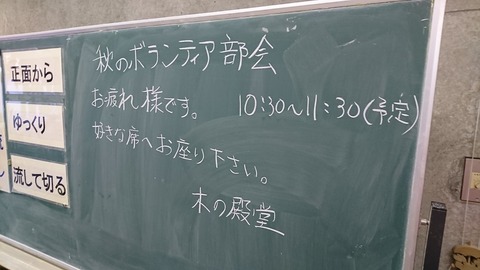 秋のボランティア部会
お疲れ様です。 10:30〜11:30(予定)
好きな席へお座り下さい。
木の殿堂
正面から
ゆっくり
流して切る